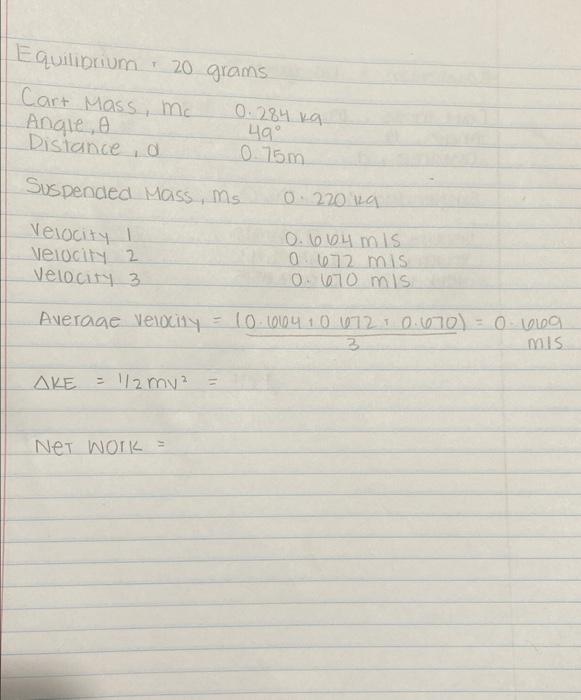 Equilibrium : 20 grams
Cart Mass, mc 0.284 kg
Angle, θ 49°
Distance, d 0.75m
Suspended Mass, ms 0.220 kg
Velocity 1 0.664 m/s
Velocity 2 0.672 m/s
Velocity 3 0.670 m/s
Average Velocity = (0.664 + 0.672 + 0.670) = 0.669
3 m/s
ΔKE = 1/2 mv² =
Net Work =